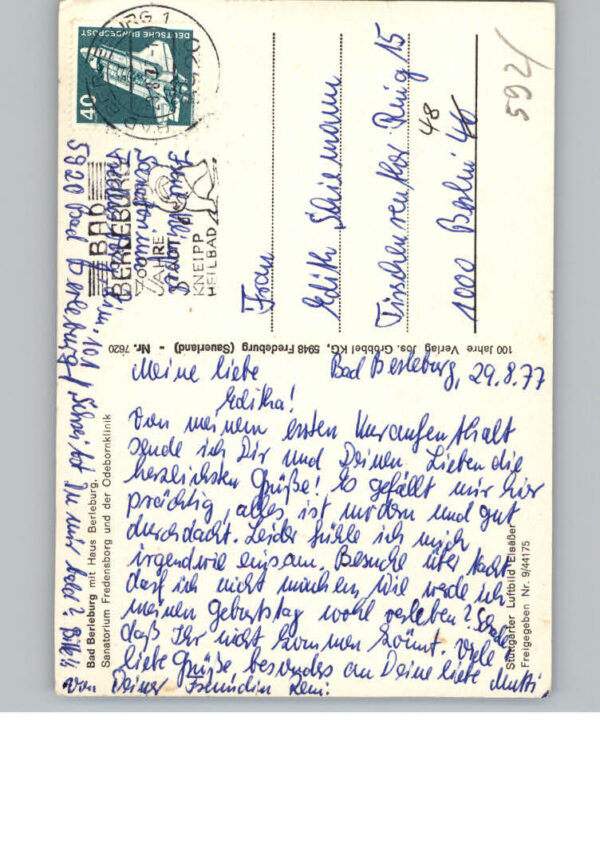 592/
DEUTSCHE BUNDESPOST
40
BAD
BERLEBURG
700
JAHRE
STADT
KNEIPP
HEILBAD
Frau
Edith Schiemann
Tirschenreuther Ring 15
48
1000 Berlin 46
100 Jahre Verlag Jos. Gröbbel KG, 5948 Fredeburg (Sauerland) - Nr. 7620
Meine liebe Bad Berleburg, 29.8.77
Editha!
Von meinem ersten Kuraufenthalt
sende ich Dir und Deinen Lieben die
herzlichsten Grüße! Es gefällt mir hier
prächtig, alles ist modern und gut
durchdacht. Leider fühle ich mich
irgendwie einsam. Besuche über Nacht
darf ich nicht machen, wie werde ich
meinen Geburtstag wohl verleben? Schade,
daß Ihr nicht kommen könnt. Viele
liebe Grüße besonders an Deine liebe Mutti,
von Deiner Freundin
Sanatorium
5920 Bad Berleburg
Schreibst Du mir
Bad Berleburg mit Haus Berleburg,
Sanatorium Fredensborg und der Odebornklinik
Stuttgarter Luftbild Elsäßer
Freigegeben Nr. 9/44175